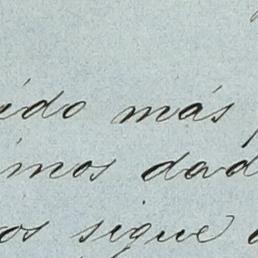 ido más
imos dad
os sigue